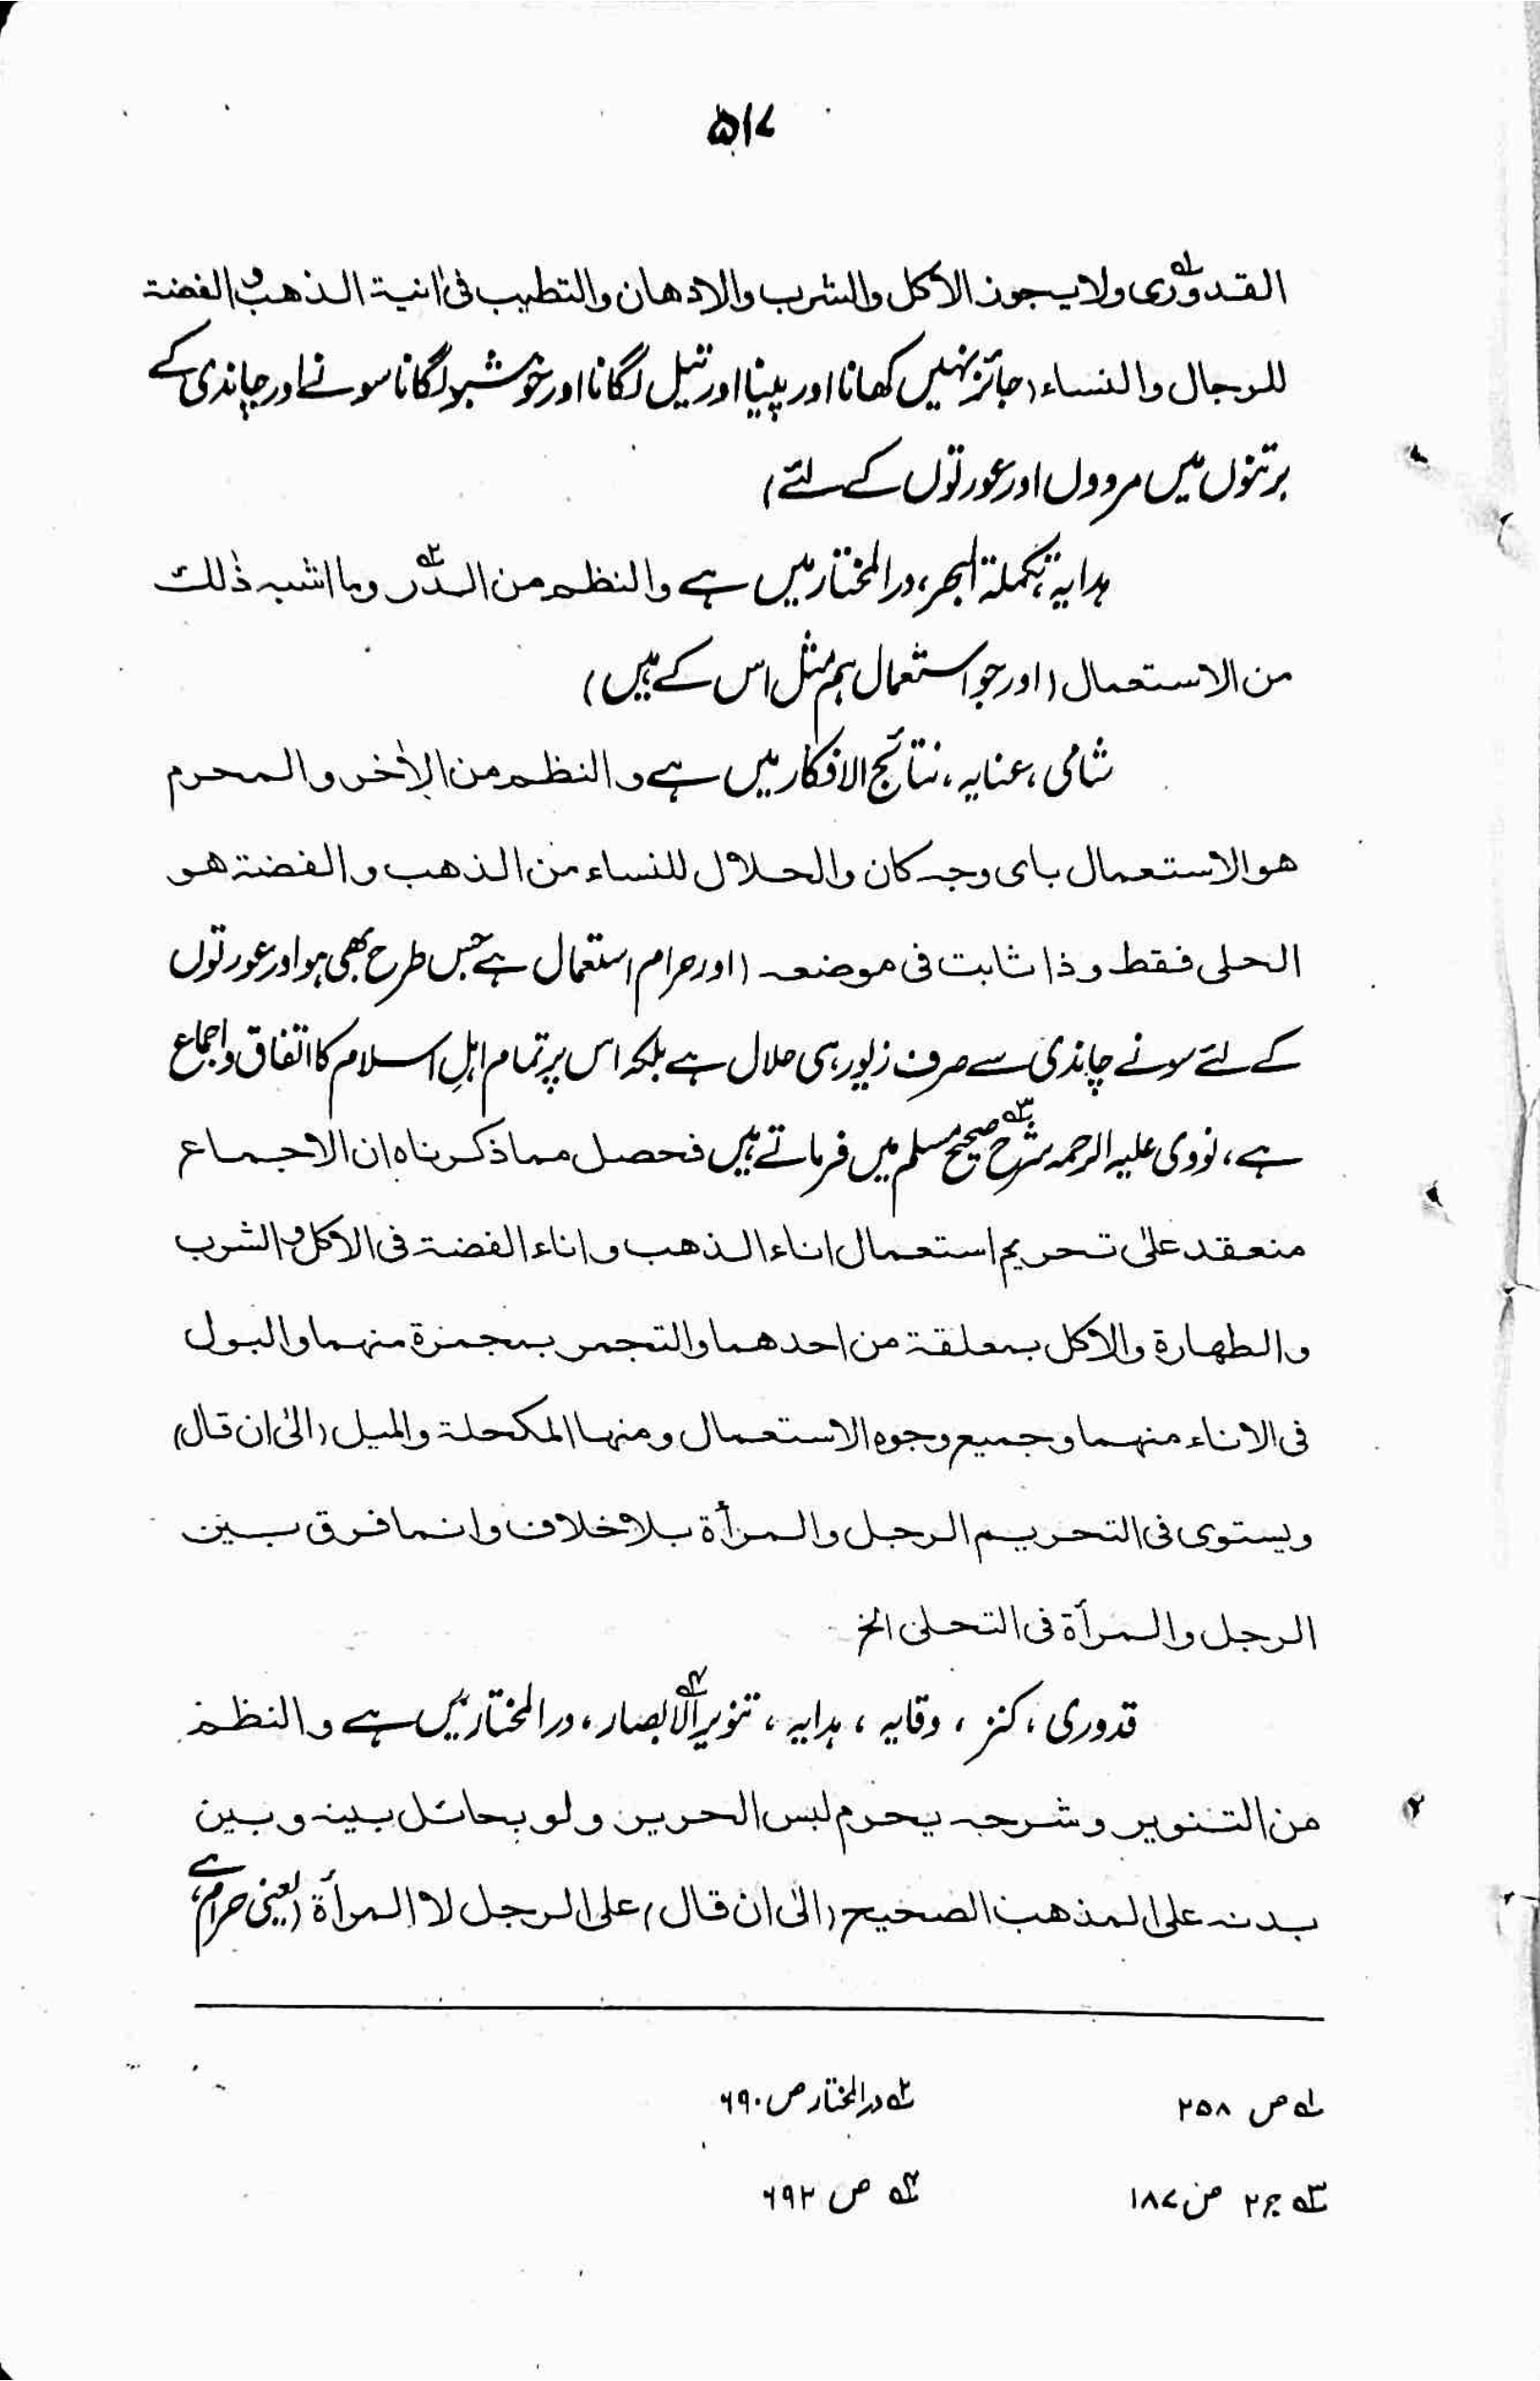 ۵۱۷
القدوری۱؎ ولا یجوز الاکل والشرب والادھان والتطیب فی اٰنیۃ الذھب والفضۃ
للرجال والنساء (جائز نہیں کھانا اور پینا اور تیل لگانا اور خوشبو لگانا سونے اور چاندی کے
برتنوں میں مردوں اور عورتوں کے لئے)
ہدایہ، تکملۃ البحر، درالمختار میں ہے والنظم من الدر۲؎ وما اشبہ ذٰلک
من الاستعمال (اور جو استعمال ہم مثل اس کے ہیں)
شامی، عنایہ، نتائج الافکار میں ہے والنظم من الاٰخر والمحرم
ھو الاستعمال بای وجہ کان والحلال للنساء من الذھب والفضۃ ھو
الحلی فقط وذا ثابت فی موضعہ (اور حرام استعمال ہے جس طرح بھی ہو اور عورتوں
کے لئے سونے چاندی سے صرف زیور ہی حلال ہے بلکہ اس پر تمام اہلِ اسلام کا اتفاق و اجماع
ہے، نووی علیہ الرحمہ شرح۳؎ صحیح مسلم میں فرماتے ہیں فحصل مما ذکرناہ ان الاجماع
منعقد علیٰ تحریم استعمال اناء الذھب واناء الفضۃ فی الاکل والشرب
والطھارۃ والاکل بمعلقۃ من احدھما والتجمر بمجمزۃ منھما والبول
فی الاناء منھما وجمیع وجوہ الاستعمال ومنھا المکحلۃ والمیل (الیٰ ان قال)
ویستوی فی التحریم الرجل والمرأۃ بلا خلاف وانما فرق بین
الرجل والمرأۃ فی التحلی الخ
قدوری، کنز، وقایہ، ہدایہ، تنویر الابصار۴؎، درالمختار میں ہے والنظم
من التنویر وشرحہ یحرم لبس الحریر ولو بحائل بینہ وبین
بدنہ علی المذھب الصحیح (الیٰ ان قال) علی الرجل لا المرأۃ (یعنی حرام ہے،
۱؎ ص ۲۵۸
۲؎ درالمختار ص ۶۹۰
۳؎ ج۲ ص ۱۸۷
۴؎ ص ۶۹۲